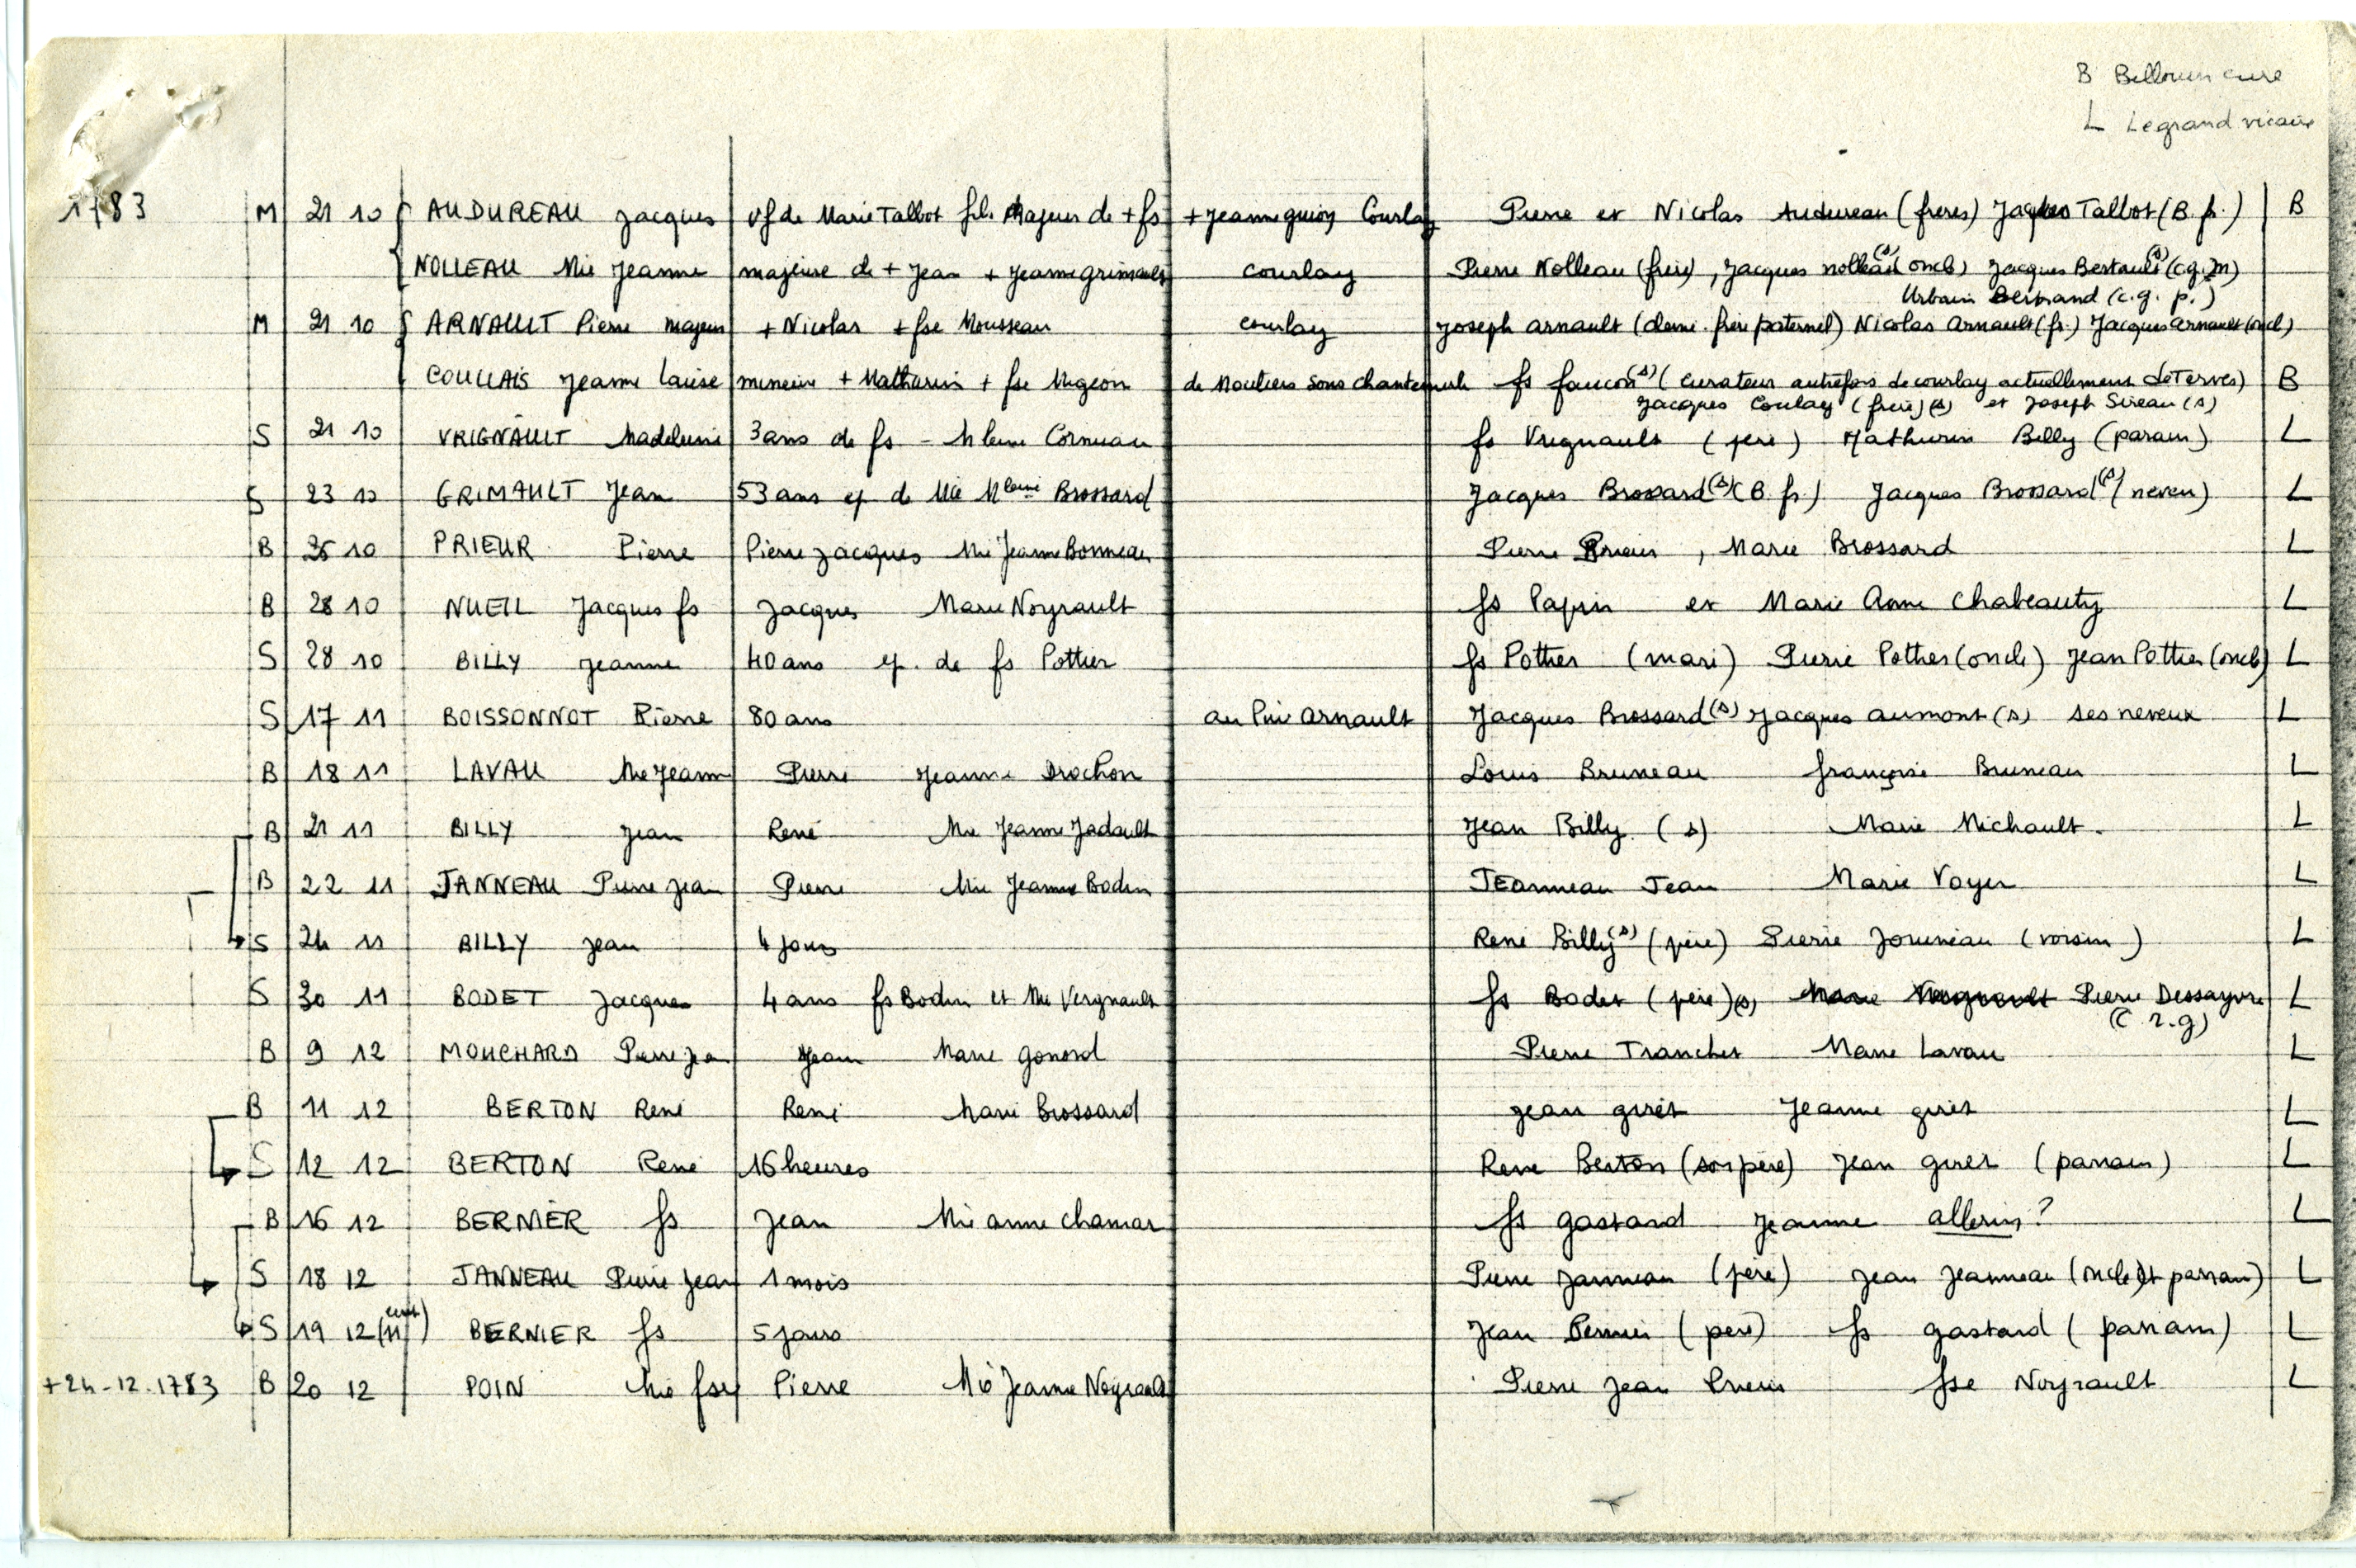 B Bellouin cure
L Legrand vicaire
1783 M 21 10 { AUDUREAU Jacques vf de Marie Talbot fils Majeur de + fs + Jeanne guioy Courlay Pierre et Nicolas Audureau (freres) Jacques Talbot (B. fr.) B
NOLLEAU Mie Jeanne majeure de + Jean + Jeanne grimault courlay Pierre Nolleau (frère), Jacques nolleau (s) (oncle) Jacques Bertault (s) (c.g.m)
Urbain Bertrand (c.g. p.)
M 21 10 { ARNAULT Pierre majeur + Nicolas + fse Mousseau courlay Joseph arnault (demi-frère paternel) Nicolas Arnault (fr.) Jacques arnault (oncl)
COULLAIS Jeanne Louise mineure + Mathurin + fse Migeon de Moutiers sous chantemerle fs faucon (s) (curateur autrefois de courlay actuellement de Terves) B
Jacques Coulay (frère) (s) et Joseph Sireau (s)
S 21 10 VRIGNAULT Madeleine 3 ans de fs - Mleine Cornuau fs Vrignault (père) Mathurin Billy (parain) L
S 23 10 GRIMAULT Jean 53 ans ep de Mie Mleine Brossard Jacques Brossard (s) (B. fr.) Jacques Brossard (s) (neveu) L
B 25 10 PRIEUR Pierre Pierre Jacques Mie Jeanne Bonneau Pierre Prieur, Marie Brossard L
B 28 10 NUEIL Jacques fs Jacques Marie Noyrault fs Papin et Marie Anne Chabeauty L
S 28 10 BILLY Jeanne 40 ans ep. de fs Pottier fs Pottier (mari) Pierre Pottier (oncle) Jean Pottier (oncle) L
S 17 11 BOISSONNOT Pierre 80 ans au Pin Arnault Jacques Brossard (s) Jacques aumont (s) ses neveux L
B 18 11 LAVAU Mie Jeanne Pierre Jeanne Drochon Louis Bruneau françoise Bruneau L
B 21 11 BILLY Jean René Mie Jeanne Jadault Jean Billy (s) Marie Michault. L
B 22 11 JANNEAU Pierre Jean Pierre Mie Jeanne Bodin JEanneau Jean Marie Voyer L
S 24 11 BILLY Jean 4 jours René Billy (s) (père) Pierre Jouneau (voisin) L
S 30 11 BODET Jacques 4 ans fs Bodin et Mie Vergnault fs Bodet (père) (s) Pierre Dessayvre L
(c. r. g)
B 9 12 MOUCHARD Pierre Jean Jean Marie Gonord Pierre Tranchet Marie Lavau L
B 11 12 BERTON René René Marie Brossard Jean giret Jeanne giret L
S 12 12 BERTON René 16 heures René Berton (son père) Jean giret (parrain) L
B 16 12 BERNIER fs Jean Mie anne chamar fs gastard Jeanne allerin? L
S 18 12 JANNEAU Pierre Jean 1 mois Pierre Janneau (père) Jean Jeanneau (oncle et parrain) L
S 19 12 BERNIER fs 5 jours Jean Bernier (père) fs gastard (parrain) L
+ 24-12.1783 B 20 12 POIN Mie fse Pierre Mie Jeanne Noyrault Pierre Jean fse Noyrault L